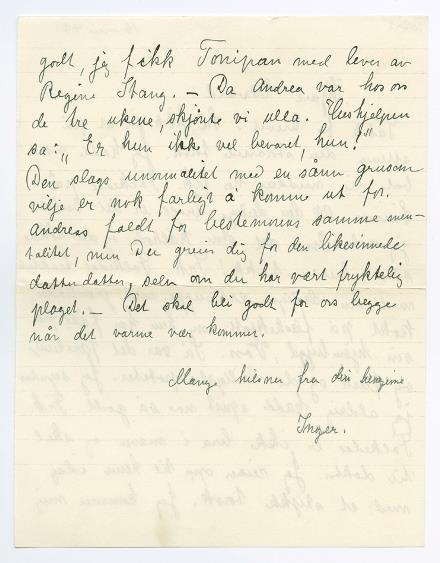 godt, jeg fikk Tonipan med lever av
Regine Stang. — Da Andrea var hos oss
de tre ukene, skjønte vi ulla. Hushjelpen
sa: „Er hun ikke vel bevaret, hun?"
Den slags unormalitet med en sånn grusom
vilje er nok farligt å komme ut for.
Andreas faldt for bestemorens samme men-
talitet, men Du greier dig for den likesinnede
datterdatter, selv om du har vært fryktelig
plaget. — Det skal bli godt for oss begge
når det varme vær kommer.
Mange hilsner fra din kusine
Inger.